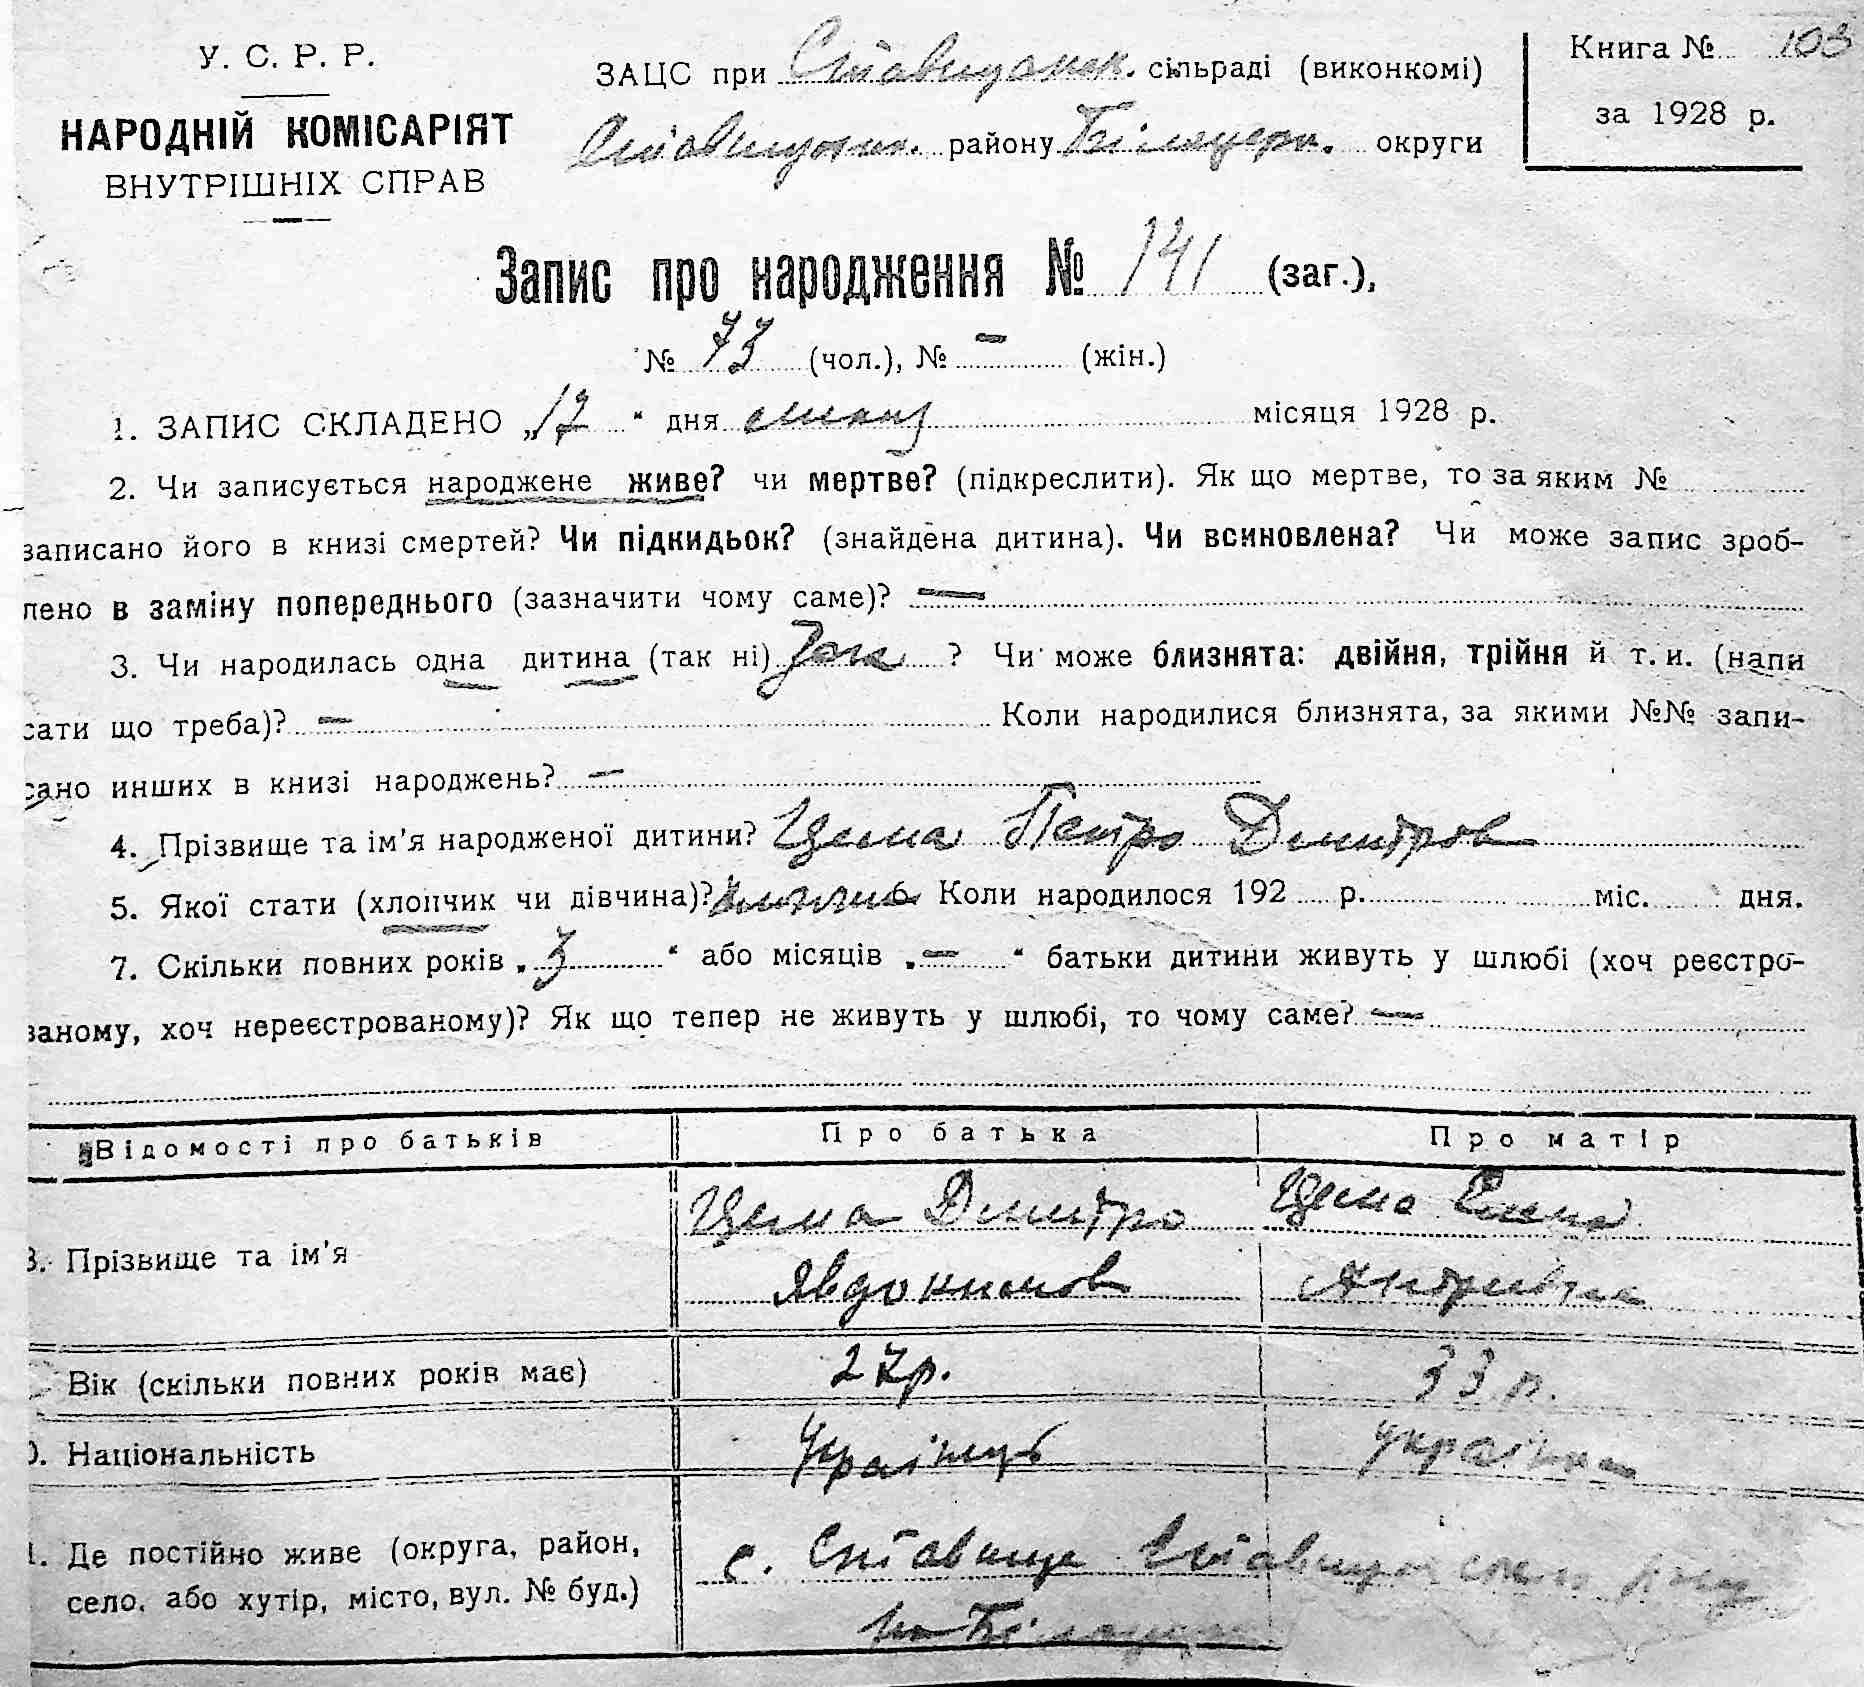 У. С. Р. Р.
НАРОДНІЙ КОМІСАРІЯТ
ВНУТРІШНІХ СПРАВ
ЗАЦС при Ставищанськ. сільраді (виконкомі)
Ставищанськ. району Білоцерк. округи
Книга № 103
за 1928 р.
Запис про народження № 141 (заг.),
№ 73 (чол.), № – (жін.)
1. ЗАПИС СКЛАДЕНО „17 “ дня місяця 1928 р.
2. Чи записується народжене живе? чи мертве? (підкреслити). Як що мертве, то за яким №
записано його в книзі смертей? Чи підкидьок? (знайдена дитина). Чи всиновлена? Чи може запис зроб-
лено в заміну попереднього (зазначити чому саме)? —
3. Чи народилась одна дитина (так ні) Так ? Чи може близнята: двійня, трійня й т. и. (напи
сати що треба)? – Коли народилися близнята, за якими №№ запи-
сано инших в книзі народжень? –
4. Прізвище та ім'я народженої дитини? Цема Петро Дмитров
5. Якої стати (хлопчик чи дівчина)? хлопчик 6 Коли народилося 192 р. міс. дня.
7. Скільки повних років „ 3 “ або місяців „ – “ батьки дитини живуть у шлюбі (хоч реєстро-
ваному, хоч нереєстрованому)? Як що тепер не живуть у шлюбі, то чому саме? —
Відомості про батьків Про батька Про матір
8. Прізвище та ім'я Цема Дмитро Цема Елена
Явдокимов
Вік (скільки повних років має) 27 р. 33 р.
0. Національність Українець Українка
1. Де постійно живе (округа, район,
село, або хутір, місто, вул. № буд.) с. Ставище